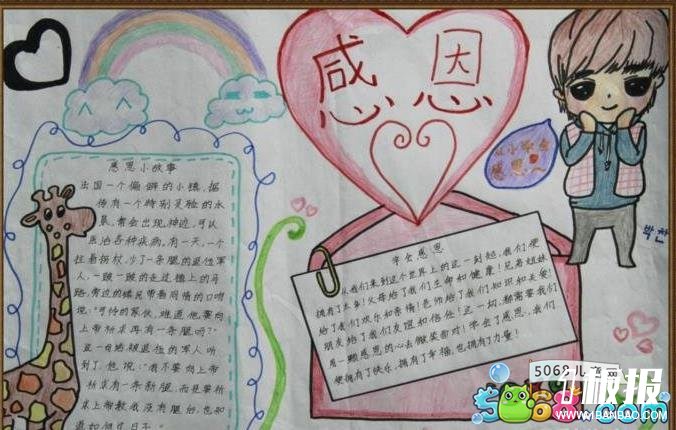 感恩
感恩小故事
法国一个偏僻的小镇,据
传有一个特别灵验的水
泉,常会出现神迹,可以
医治各种疾病。有一天,一个
拄着拐杖,少了一条腿的退伍军
人,一跛一跛的走过镇上的马
路,旁边的镇民带着同情的口吻
说:"可怜的家伙,难道他要向
上帝祈求再有一条腿吗?"
这一句话被退伍的军人听
到了,他说:"我不要向上帝
祈求有一条新腿,而是要祈
求上帝教我没有腿后,也知
道如何过日子。"
从小学会
感恩
学会感恩
从我们来到这个世界上的这一刻起,我们便
拥有了太多!父母给了我们生命和健康!兄弟姐妹
给了我们欢乐和亲情!老师给了我们知识和关爱!
朋友给了我们友谊和信任!这一切,都需要我们
用一颗感恩的心去做装回对!学会了感恩,我们
便拥有了快乐,拥有了幸福,也拥有了力量!
5068儿童网
板报
WWW.1BANBAO.COM